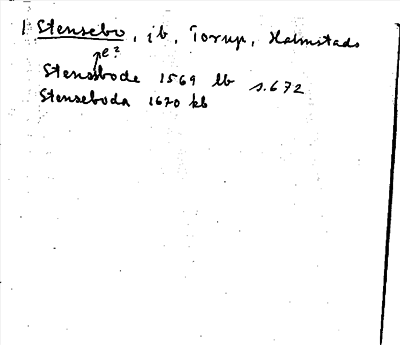 1 Stensebo, ib, Torup, Halmstads
pe?
Stensbode 1569 lb s. 672
Stenseboda 1670 kb